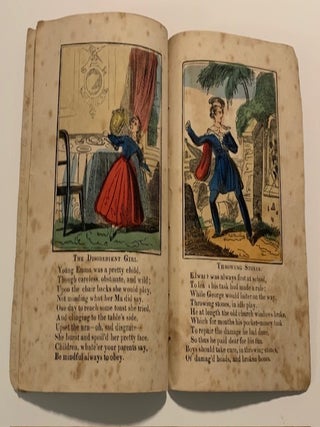 THE DISOBEDIENT GIRL.
Young Emma was a pretty child,
Though careless, obstinate, and wild;
Upon the chair backs she would
Not minding what her Ma did say.
One day to reach some toast she tried,
And clinging to the table's side,
Upset the urn—oh, sad disgrace
She burnt and spoil'd her pretty face.
Children, whate'er your parents say,
Be mindful always to obey.
THROWING STONES.
was always first at school,
To his task had made a rule;
While George would loiter on the way,
Throwing stones, in idle play,
He at length the old church windows broke,
Which for months his pocket-money took
To repair the damage he had done,
So thus he paid dear for his fun.
Boys should take care, in throwing stones,
Of damag'd heads, and broken bones.